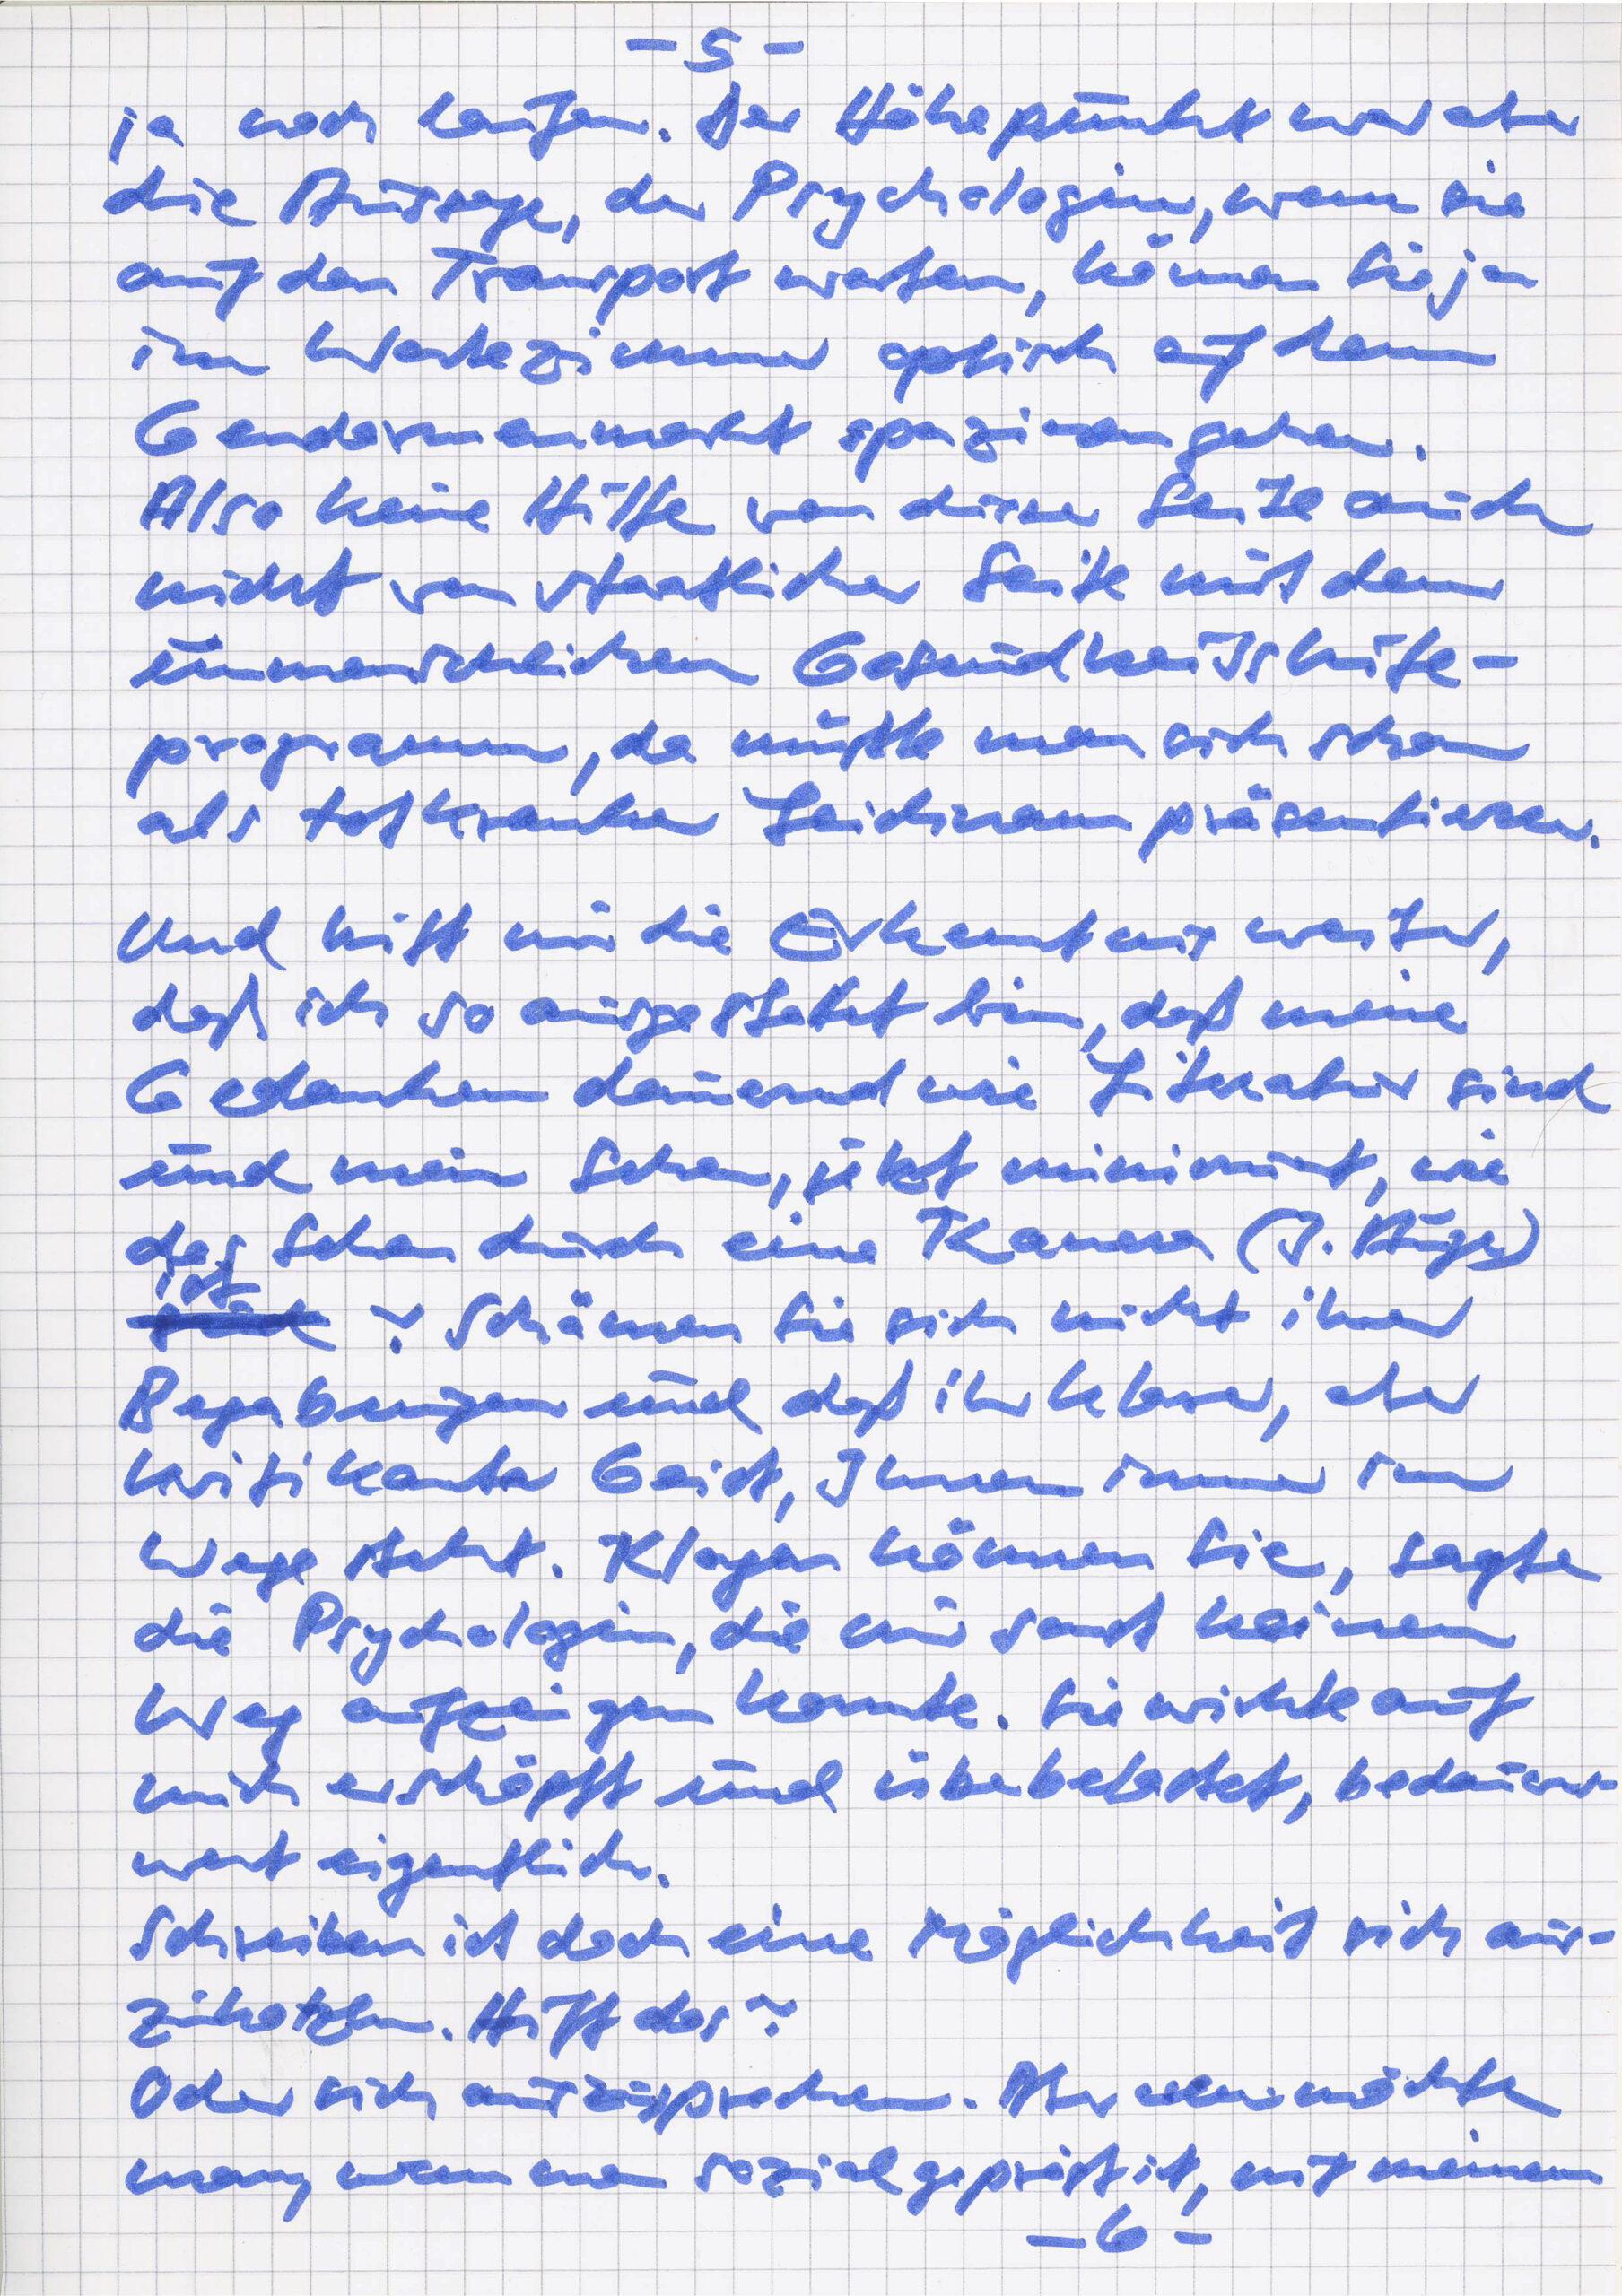 - 5 -
ja noch laufen. Der Höhepunkt war aber
die Aussage, der Psychologin, wenn sie
auf den Transport warten, können Sie ja
im Wartezimmer optisch auf dem
Gendarmenmarkt spazierengehen.
Also keine Hilfe von dieser Seite auch
nicht von staatlicher Seite mit dem
unmenschlichen Gesundheitshilfe-
programm, da müßte man sich schon
als totkranker Leichnam präsentieren.
Und hilft mir die Erkenntnis weiter,
daß ich so ausgestattet bin, daß meine
Gedanken dauernd wie Literatur sind
und mein Sehen, jetzt minimiert, wie
das Sehen durch eine Kamera (3. Auge)
ist ? Schämen Sie sich nicht ihrer
Begabungen und daß ihr klarer, aber
kritikanter Geist, Ihnen immer im
Wege steht. Klagen können Sie, sagte
die Psychologin, die mir sonst keinen
Weg aufzeigen konnte. Sie wirkte auf
mich erschöpft und überbelastet, bedauerns-
wert eigentlich.
Schreiben ist doch eine Möglichkeit sich aus-
zukotzen. Hilft das?
Oder sich auszusprechen. Aber wer möchte
man, wenn man sozial geprägt ist, mit meinem
- 6 -